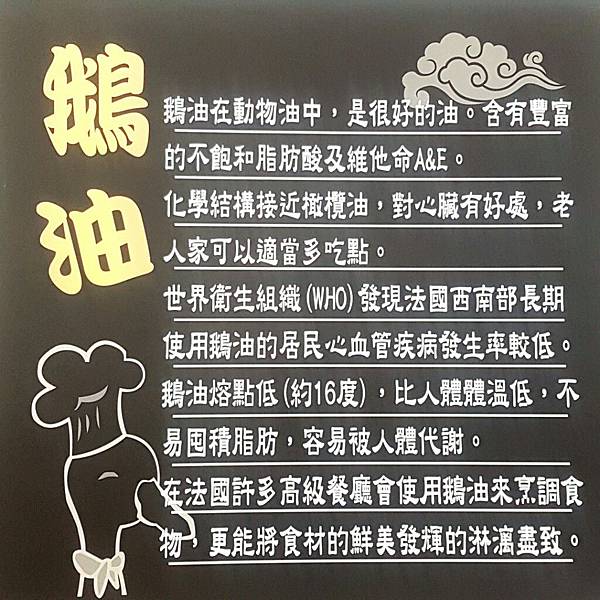 鵝油
鵝油在動物油中，是很好的油。含有豐富
的不飽和脂肪酸及維他命A&E。
化學結構接近橄欖油，對心臟有好處，老
人家可以適當多吃點。
世界衛生組織(WHO)發現法國西南部長期
使用鵝油的居民心血管疾病發生率較低。
鵝油熔點低(約16度)，比人體體溫低，不
易囤積脂肪，容易被人體代謝。
在法國許多高級餐廳會使用鵝油來烹調食
物，更能將食材的鮮美發輝的淋漓盡致。